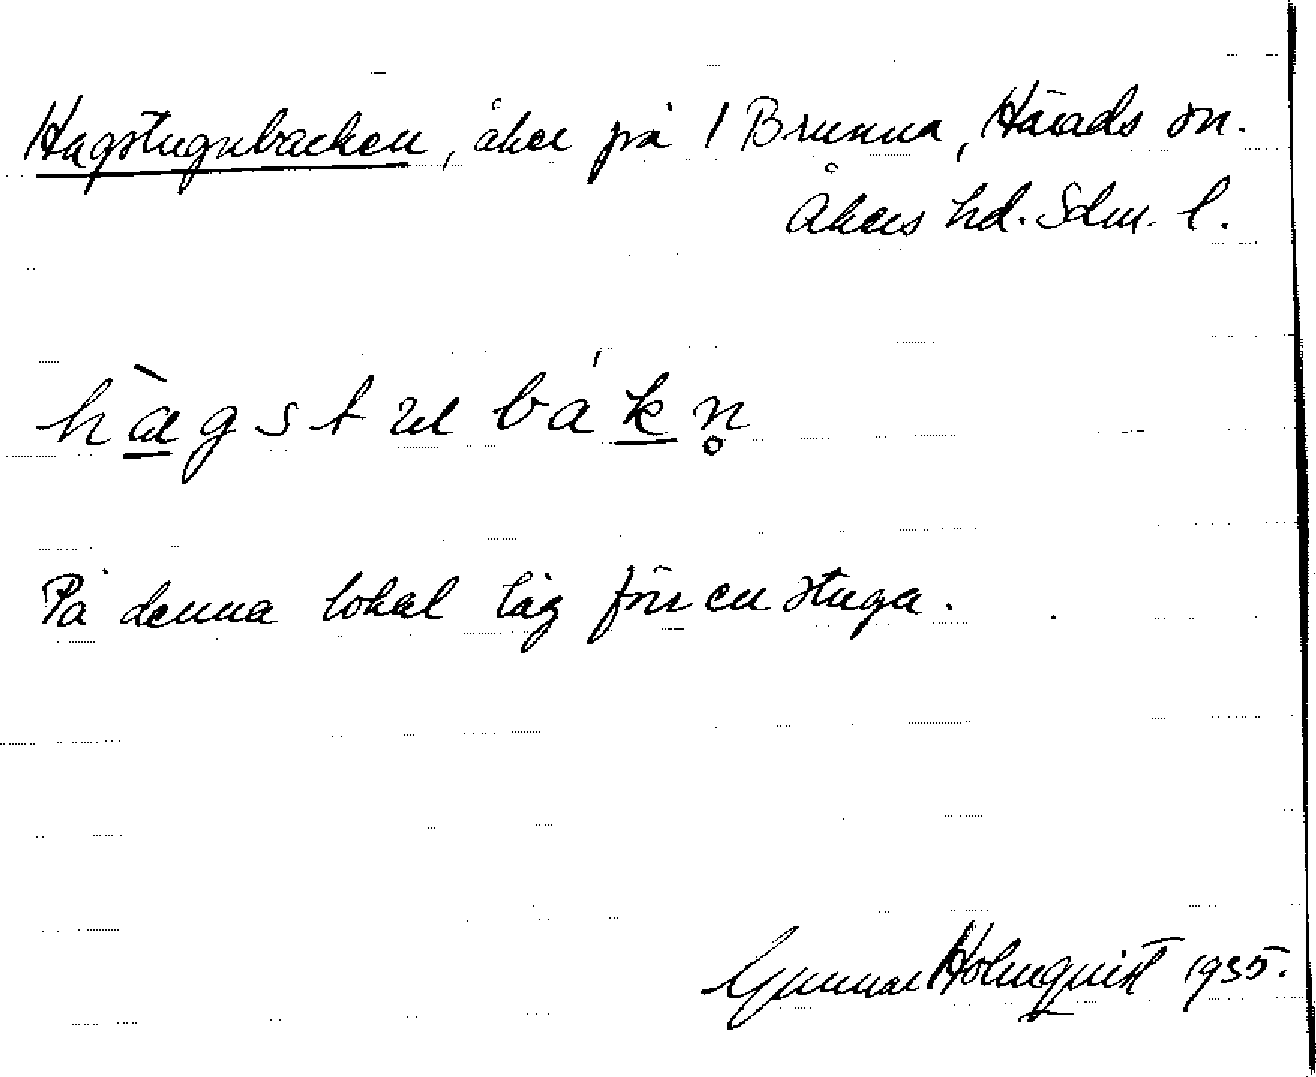 Hagstugubacken, åker på 1 Brunna, Härads sn.
Åkers hd. Sdm. l.
hàgstubákn̥
På denna lokal låg förr en stuga.
Gunnar Holmquist 1935.